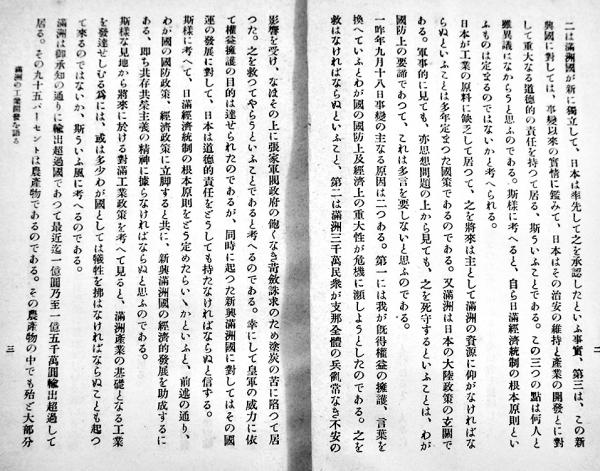 二は滿洲國が新に獨立して、日本は率先して之を承認したといふ事實、第三は、この新
興國に對しては、事變以來の實情に鑑みて、日本はその治安の維持と產業の開發とに對
して重大なる道德的の責任を持つて居る、斯ういふことである。この三つの點は何人と
雖異議はなからうと思ふのである。斯樣に考へると、自ら日滿經濟統制の根本原則とい
ふものは定まるのではないかと考へられる。
日本が工業の原料に缺乏して居つて、之を將來は主として滿洲の資源に仰がなければな
らぬといふことは多年定まつた國策であるのである。又滿洲は日本の大陸政策の玄關で
ある。軍事的に見ても、亦思想問題の上から見ても、之を死守するといふことは、わが
國防上の要諦であつて、これは多言を要しないと思ふのである。
一昨年九月十八日事變の主なる原因は二つある。第一には我が既得權益の擁護、言葉を
換へていふとわが國の國防上及經濟上の重大性が危機に瀕しようとしたのである。之を
救はなければならぬといふこと、第二は滿洲三千萬民衆が支那全體の兵亂常なき不安の
二
影響を受け、なほその上に張家軍閥政府の飽くなき苛斂誅求のため塗炭の苦に陷つて居
つた。之を救つてやらうといふことであると考へるのである。幸にして皇軍の威力に依
て權益擁護の目的は達せられたのであるが、同時に起つた新興滿洲國に對してはその國
運の發展に對して、日本は道德的責任をどうしても持たなければならぬと信ずる。
斯樣に考へて、日滿經濟統制の根本原則をどう定めたらいゝかといふと、前述の通り、
わが國の國防政策、經濟政策に立脚すると共に、新興滿洲國の經濟的發展を助成するに
ある、卽ち共存共榮主義の精神に據らなければならぬと思ふのである。
斯樣な見地から將來に於ける對滿工業政策を考へて見ると、滿洲產業の基礎となる工業
を發達せしむる爲には、或は多少わが國としては犧牲を拂はなければならぬことも起つ
て來るのではないか、斯ういふ風に考へるのである。
滿洲は御承知の通りに輸出超過國であつて最近迄一億圓乃至一億五千萬圓輸出超過して
居る。その九十五パーセントは農產物であるのである。その農產物の中でも殆ど大部分
滿洲の工業開發を語る
三